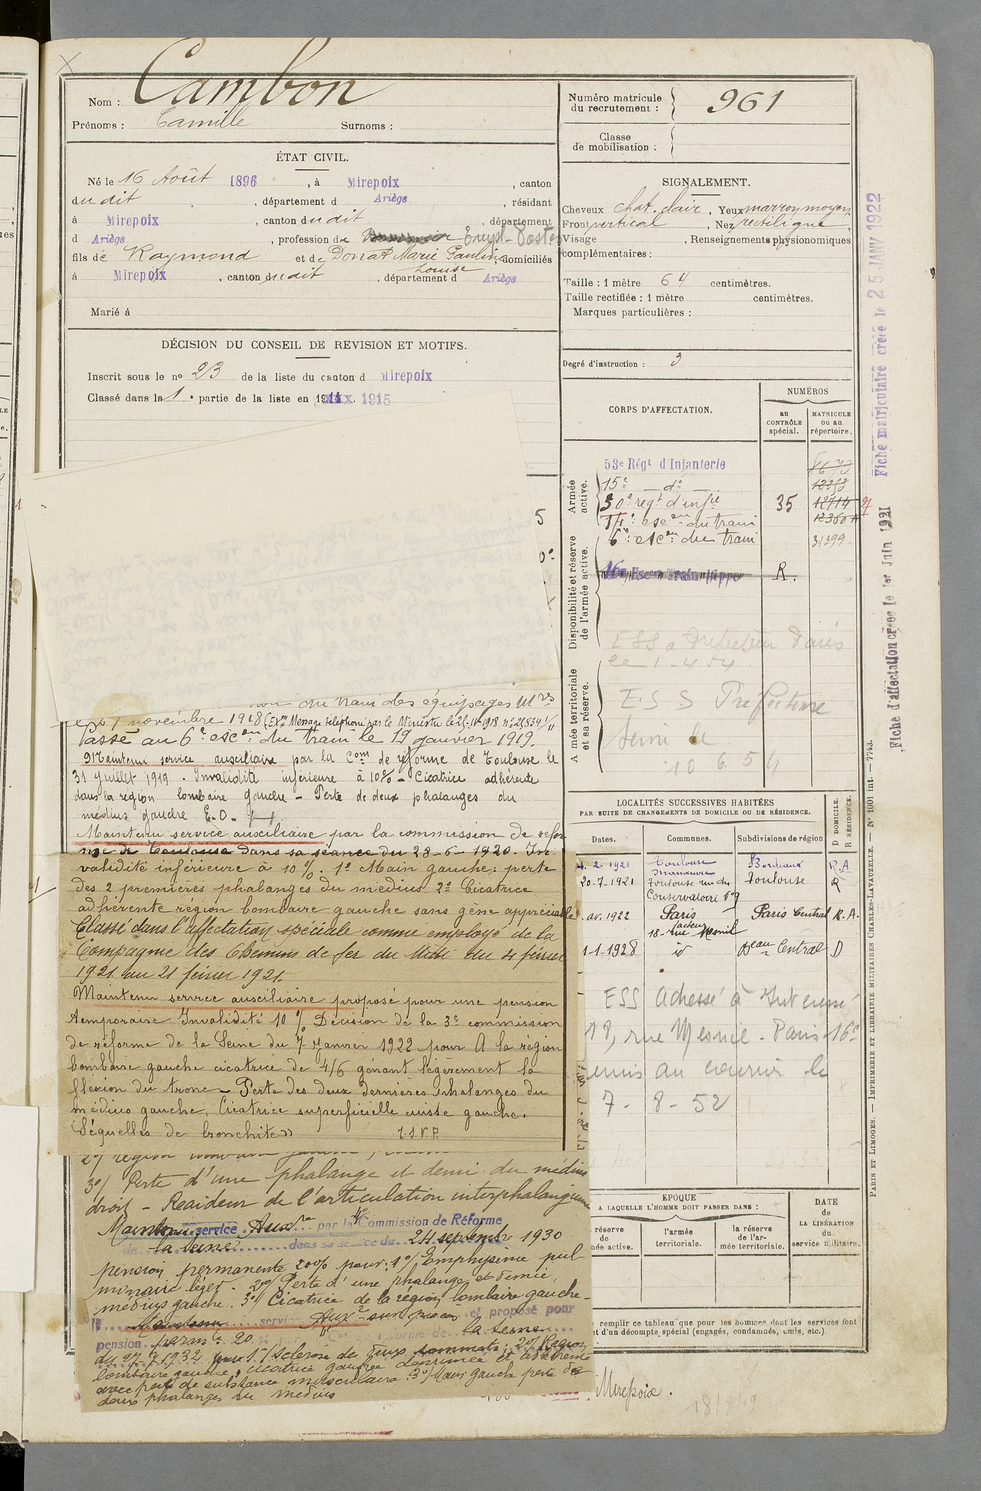 Nom : Cambon
Prénoms : Camille Surnoms :
ÉTAT CIVIL.
Né le 16 Août 1896, à Mirepoix, canton
dudit, département d Ariège, résidant
à Mirepoix, canton dudit, département
d Ariège, profession de Empl-Postes
fils de Raymond et de Donat Marie Pauline, domiciliés
Louise
à Mirepoix, canton dudit, département d Ariège
Marié à
DÉCISION DU CONSEIL DE REVISION ET MOTIFS.
Inscrit sous le no 23 de la liste du canton d Mirepoix
Classé dans la 1e partie de la liste en 1915
5
du train des équipages Mres
novembre 1918 (Exon Message téléphoné par le Ministre le
Passé au 6e escon du train le 19 janvier 1919.
Maintenu service auxiliaire par la Com de réforme de Toulouse le
31 juillet 1919 - Invalidité inférieure à 10% - Cicatrice adhérente
dans la région lombaire gauche - Perte de deux phalanges du
médius gauche E.D.
Maintenu service auxiliaire par la commission de réfor
me de Toulouse dans sa séance du 28-6-1920. In
validité inférieure à 10%. 1o Main gauche: perte
des 2 premières phalanges du médius 2o Cicatrice
adhérente région lombaire gauche sans gêne appréciable
Classé dans l'affectation spéciale comme employé de la
Compagnie des Chemins de fer du Midi du 4 février
1921 au 21 février 1921
Maintenu service auxiliaire proposé pour une pension
temporaire Invalidité 10% Décision de la 3e commission
de réforme de la Seine du 7 Janvier 1922 pour A la région
lombaire gauche cicatrice de 4/6 gênant légèrement la
flexion du tronc - Perte des deux dernières phalanges du
médius gauche. Cicatrice superficielle cuisse gauche.
Séquelles de bronchite»
2o/ région
3o/ Perte d'une phalange et demie du médius
droit - Raideur de l'articulation interphalangienne
Maintenu service Auxre par la Commission de Réforme
de la Seine dans sa séance du 24 septembre 1930
pension permanente 20% pour: 1o/ Emphysème pul
monaire léger - 2o/ Perte d'une phalange et demie
médius gauche. 3o/ Cicatrice de la région lombaire gauche -
Maintenu service Auxre et proposé pour
pension permte 20 la Seine
du 27 1932 1o/ Sclérose de deux sommets; 2o/ Région
lombaire gauche, cicatrice gauche déprimée et adhérente
avec perte de substance musculaire. 3o/ Main gauche perte de
deux phalanges du médius
Numéro matricule du recrutement : 961
Classe de mobilisation :
SIGNALEMENT.
Cheveux chat. clair, Yeux marron moyen,
Front vertical, Nez rectiligne,
Visage , Renseignements physionomiques
complémentaires :
Taille : 1 mètre 64 centimètres.
Taille rectifiée : 1 mètre centimètres.
Marques particulières :
Degré d'instruction : 3
CORPS D'AFFECTATION.
NUMÉROS
AU CONTRÔLE spécial.
MATRICULE OU AU répertoire.
Armée active.
53e Régt d'Infanterie
15e do
30e regt d'infie 35
14e escon du train
6e escon du train 31399
Disponibilité et réserve de l'armée active.
16e Escon Train Hippo R.
ESS à Préfecture Paris
le 1-4 54
Armée territoriale et sa réserve.
E.S S Préfecture
Seine le
10 6. 54
LOCALITÉS SUCCESSIVES HABITÉES
PAR SUITE DE CHANGEMENTS DE DOMICILE OU DE RÉSIDENCE.
Dates. Communes. Subdivisions de région
D DOMICILE. R RÉSIDENCE.
4.2.1921 Toulouse Bordeaux R.A
20-7-1921 Toulouse rue du Conservatoire Toulouse R
av. 1922 Paris Paris Central R.A.
18 - rue Mesnil
1-1-1928 id Beau Central D
ESS Adressé à
18, rue Mesnil - Paris 16e
au courrier le
7 - 8 - 52
EPOQUE
A LAQUELLE L'HOMME DOIT PASSER DANS :
réserve de
mée active.
l'armée territoriale.
la réserve de l'armée territoriale.
DATE de LA LIBÉRATION du service militaire.
remplir ce tableau que pour les hommes dont les services font
t d'un décompte spécial (engagés, condamnés, omis, etc.)
Mirepoix.
Fiche matriculaire créée le 25 JANV 1922
Fiche d'affectation créée le 1er Juin 1921
PARIS ET LIMOGES. — IMPRIMERIE ET LIBRAIRIE MILITAIRES CHARLES-LAVAUZELLE. — No 1001 int. — 7743.